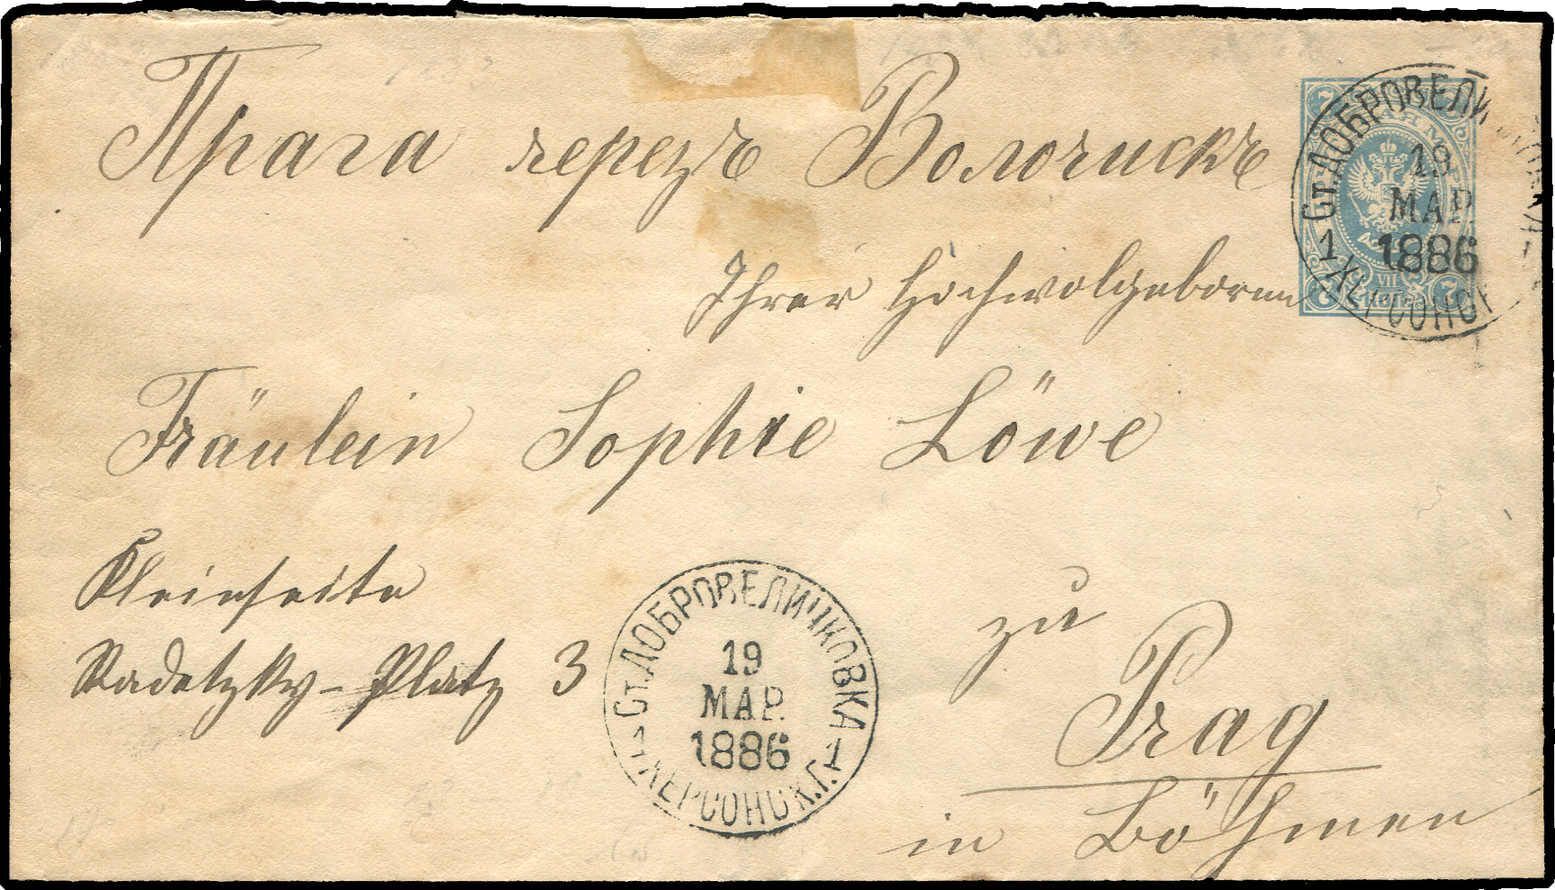 Прага черезъ Волочискъ
Ihrer Hochwolgeboren
Fräulein Sophie Löwe
Kleinseite
Radetzky-Platz 3
zu
Prag
in Böhmen
Ст. ДОБРОВЕЛИЧКОВКА
19
МАР.
1886
1 ХЕРСОНСК. Г. 1
7 7
VII
7 7
Ст. ДОБРОВЕЛИЧКОВКА
19
МАР.
1886
1 ХЕРСОНСК